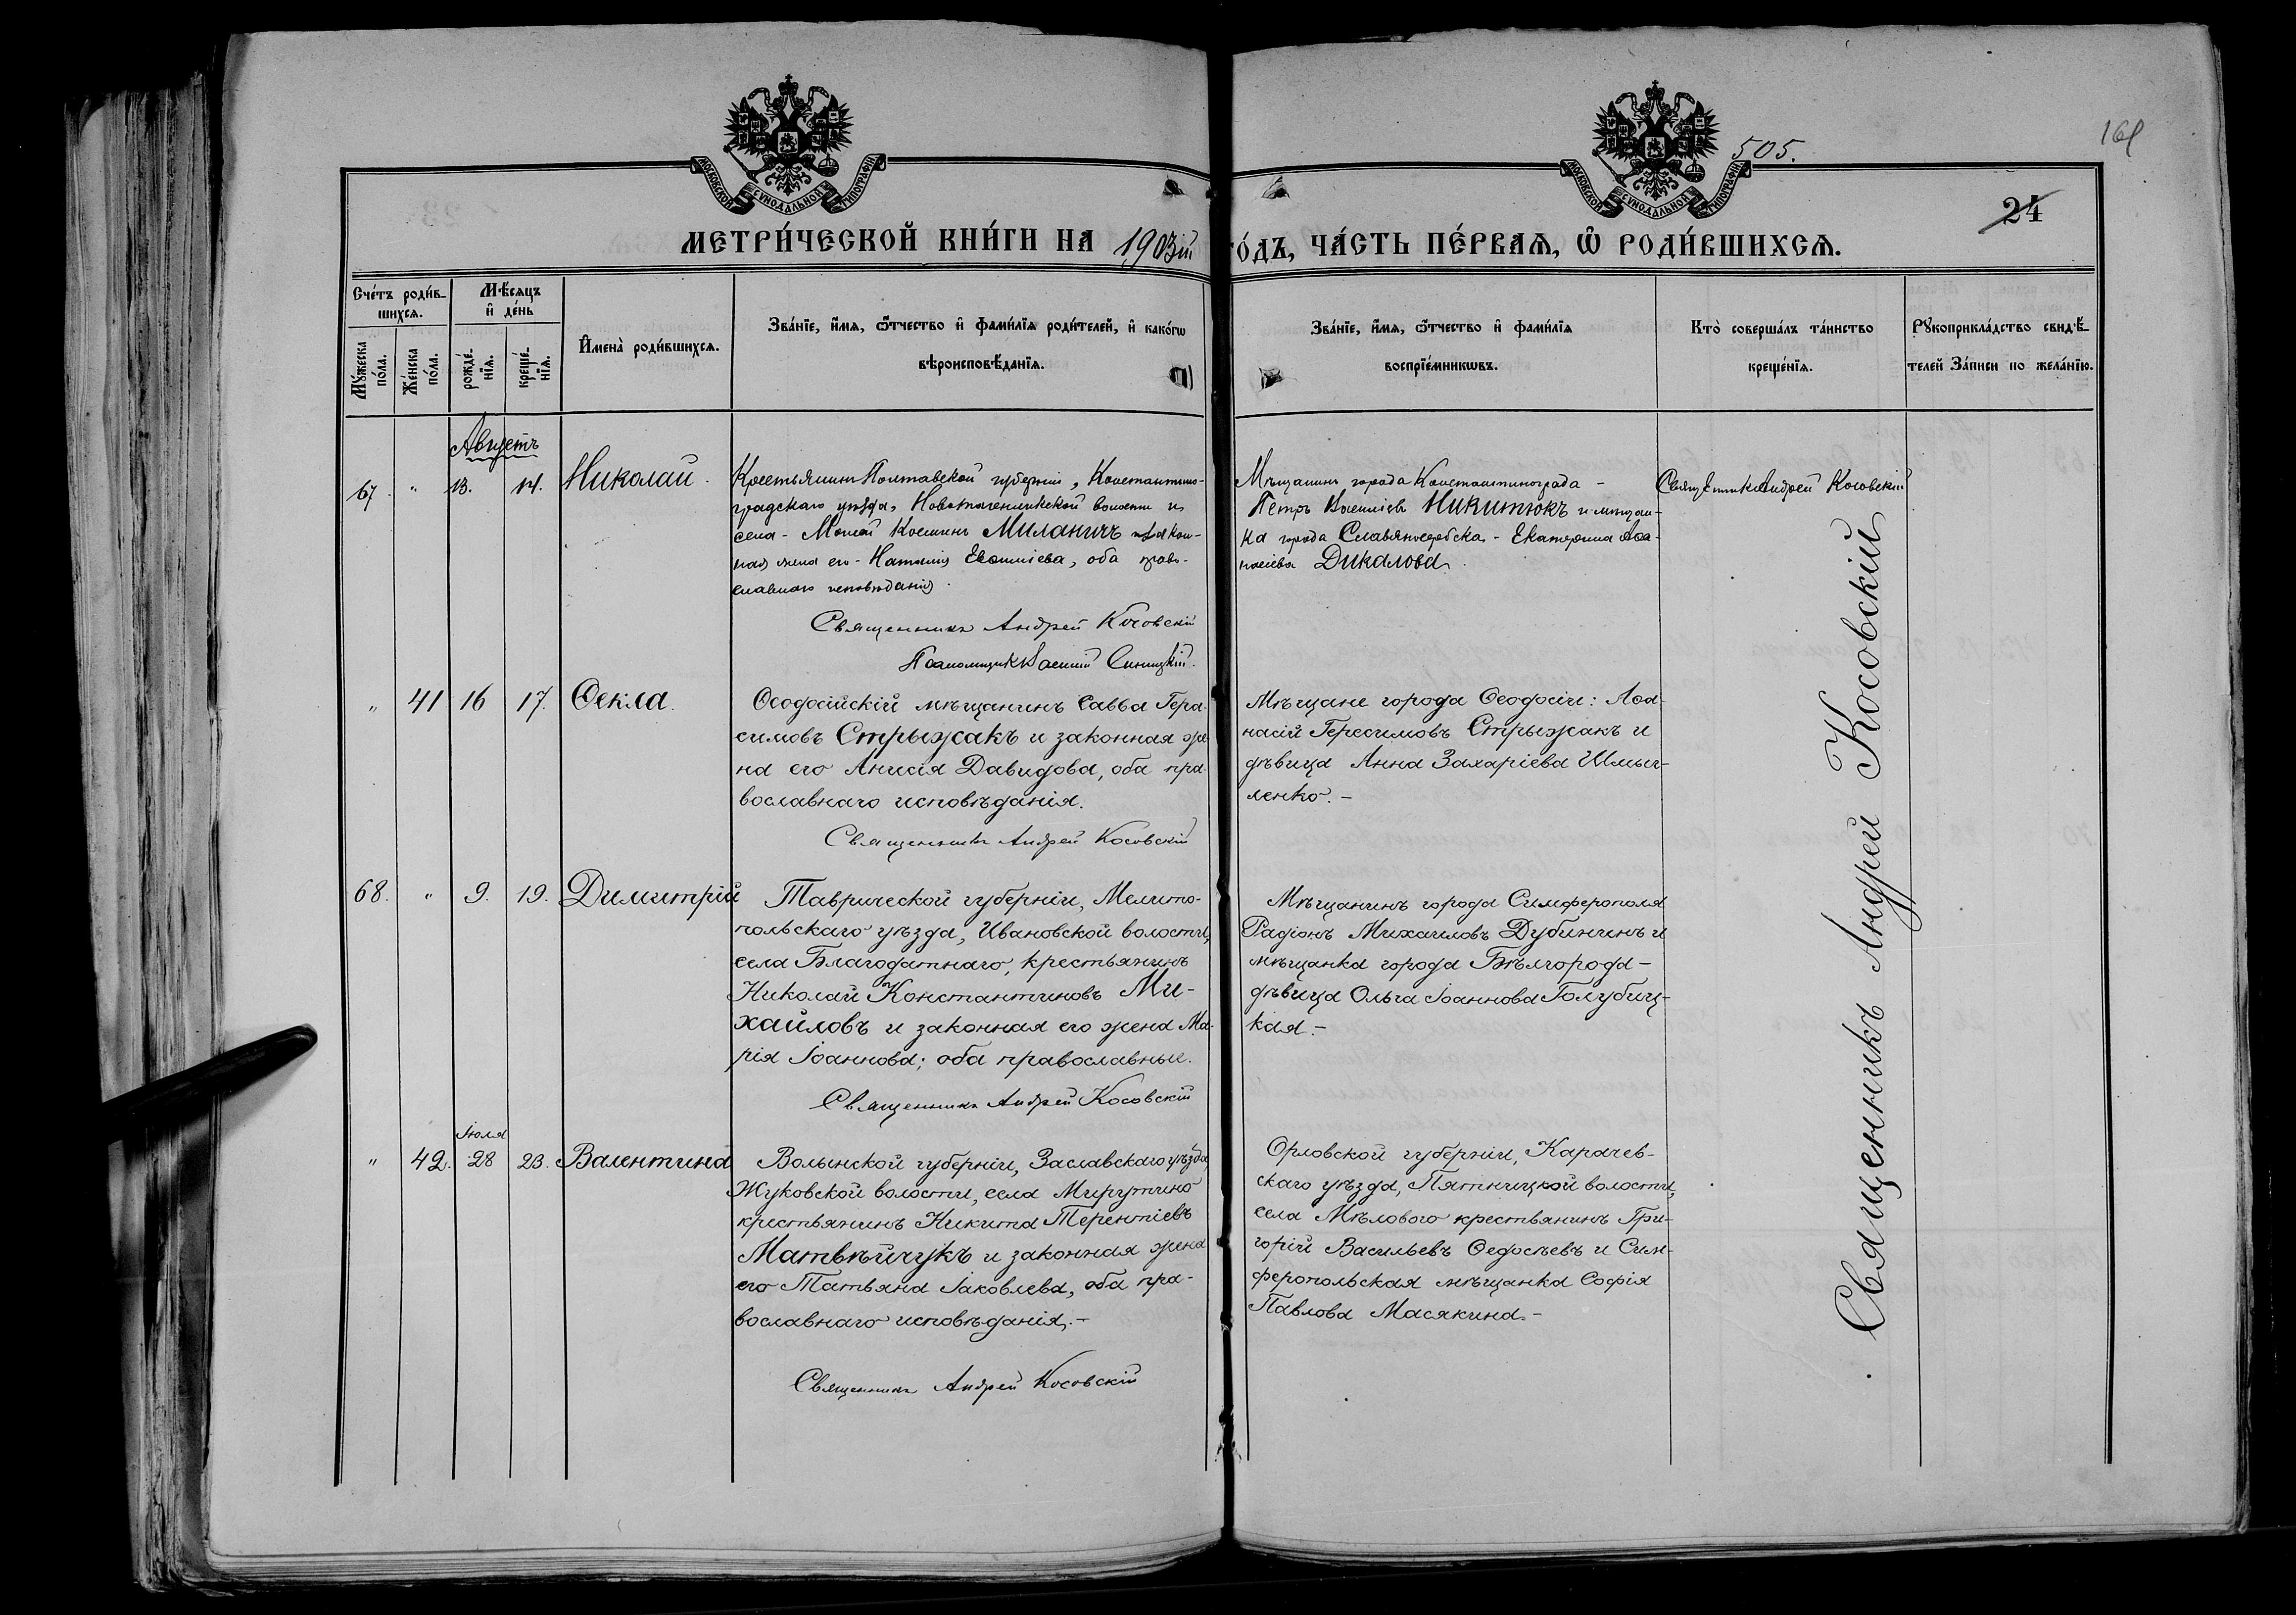 505.
161
24
МОСКОВСКОЙ СѴНОДАЛЬНОЙ ТИПОГРАФІИ
МОСКОВСКОЙ СѴНОДАЛЬНОЙ ТИПОГРАФІИ
МЕТРИ́ЧЕСКОЙ КНИ́ГИ НА 1903ій
О́ДЪ, ЧА́СТЬ ПЕ́РВАѦ, Ѿ РОДИ́ВШИХСѦ.
Сче́тъ роди́в-
шихсѧ.
Мꙋ́жеска по́ла.
Же́нска по́ла.
Мѣ́сяцъ и҆ де́нь
рожде́нїѧ.
креще́нїѧ.
И҆мена̀ роди́вшихсѧ.
Зва́нїе, и҆́мѧ, ѻ҆́тчество и҆ фами́лїѧ роди́телей, и҆ како́гѡ
вѣроисповѣ́данїѧ.
Зва́нїе, и҆́мѧ, ѻ҆́тчество и҆ фами́лїѧ
воспрїе́мникѡвъ.
Кто̀ соверша́лъ та́инство
креще́нїѧ.
Рꙋкоприкла́дство свидѣ́-
телей За́писи по жела́нїю.
Августъ
67. " 13. 14. Николай.
Крестьянинъ Полтавской губерніи, Константино-
градскаго уѣзда, волости и
села - Моисей Миланичъ и закон-
ная жена его - Наталія Евстафіева, оба право-
славнаго исповѣданія.
Священникъ Андрей Косовскій
Псаломщикъ Василій Синицкій.
Мѣщанинъ города Константинограда -
Петръ Василіевъ Никитюкъ и мѣщан-
ка города Славяносербска - Екатерина Аѳа-
насіева Дикалова.
Священникъ Андрей Косовскій
" 41 16 17. Ѳекла.
Ѳеодосійскій мѣщанинъ Савва Гера-
симовъ Стрыжакъ и законная же-
на его Анисія Давидова, оба пра-
вославнаго исповѣданія.
Священникъ Андрей Косовскій
Мѣщане города Ѳеодосіи: Аѳа-
насій Герасимовъ Стрыжакъ и
дѣвица Анна Захаріева Шмыг-
ленко. -
68. " 9. 19. Димитрій
Таврической губерніи, Мелито-
польскаго уѣзда, Ивановской волости,
села Благодатнаго, крестьянинъ
Николай Константиновъ Ми-
хайловъ и законная его жена Ма-
рія Іоаннова; оба православные.
Священникъ Андрей Косовскій
Мѣщанинъ города Симферополя
Радіонъ Михаиловъ Дубининъ и
мѣщанка города Бѣлгорода -
дѣвица Ольга Іоаннова Голубиц-
кая. -
Іюля
" 42. 28 23. Валентина
Волынской губерніи, Заславскаго уѣзда,
Жуковской волости, села Мирутино
крестьянинъ Никита Терентіевъ
Матвѣйчукъ и законная жена
его Татьяна Іаковлева, оба пра-
вославнаго исповѣданія. -
Священникъ Андрей Косовскій
Орловской губерніи, Карачев-
скаго уѣзда, Пятницкой волости,
села Мѣлового крестьянинъ Гри-
горій Васильевъ Ѳедосѣевъ и Сим-
феропольская мѣщанка Софія
Павлова Масякина. -
Священникъ Андрей Косовскій